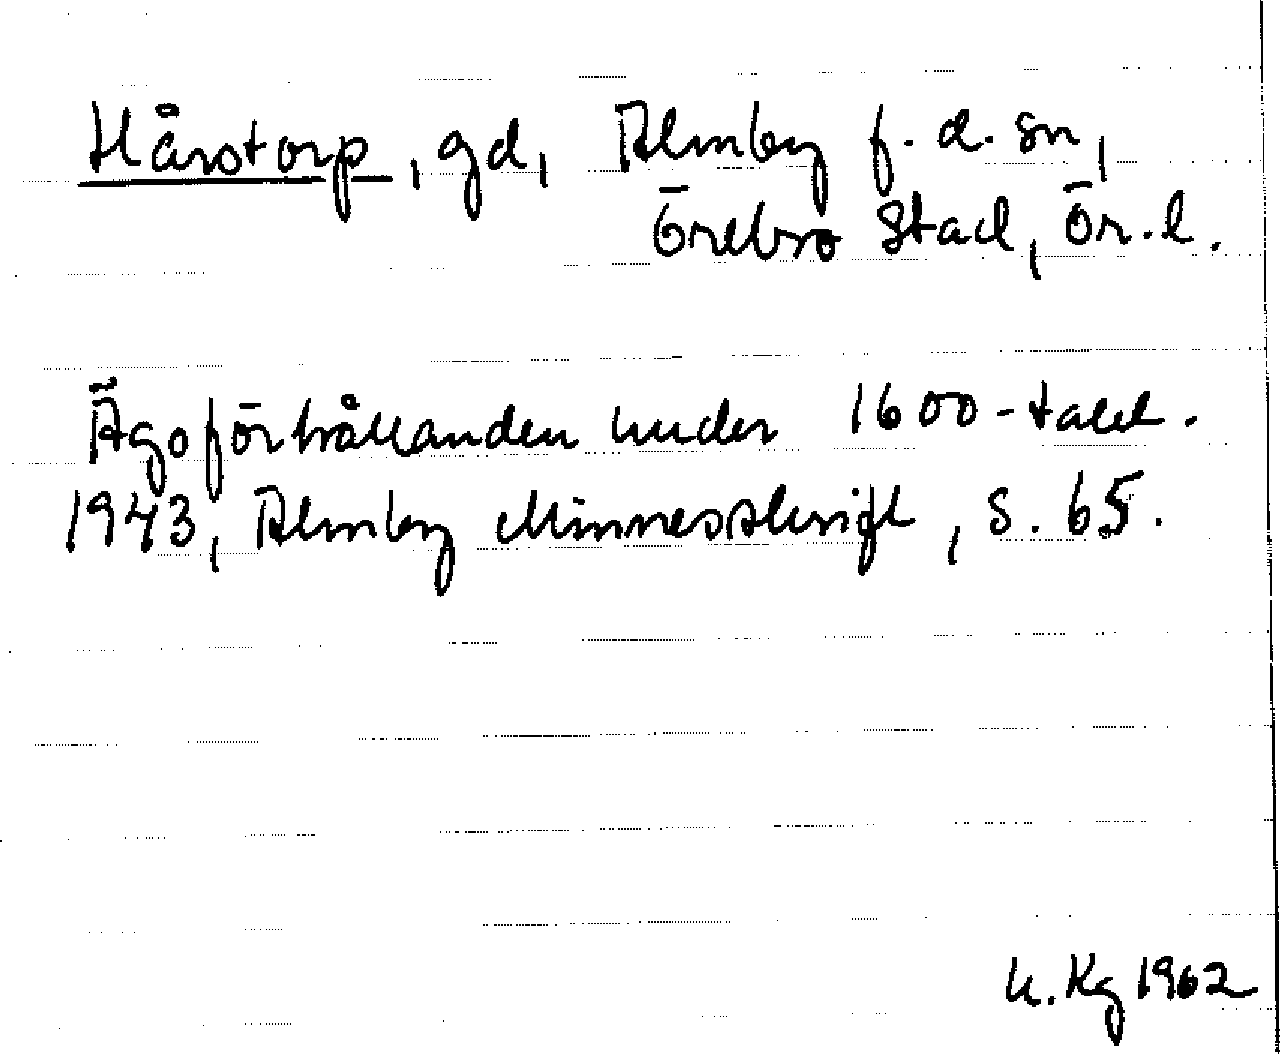 Hårstorp, gd, Almby f. d. sn,
Örebro stad, Ör. l.
Ägoförhållanden under 1600-talet.
1943, Almby Minnesskrift, s. 65.
U. Kg 1962